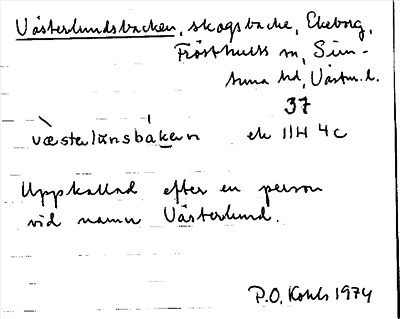 Västerlundsbacken, skogsbacke, Ekeborg,
Frösthults sn, Sim-
tuna hd, Västm. l.
37
væsterlùnsbákern ek 11H 4c
Uppkallad efter en person
vid namn Västerlund.
P.O. Kohls 1974